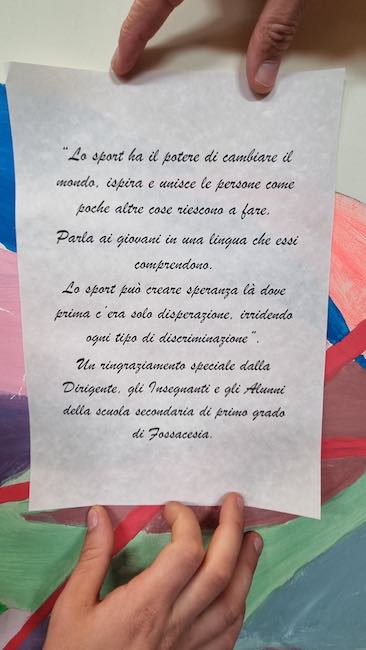 “Lo sport ha il potere di cambiare il
mondo, ispira e unisce le persone come
poche altre cose riescono a fare.
Parla ai giovani in una lingua che essi
comprendono.
Lo sport può creare speranza là dove
prima c'era solo disperazione, irridendo
ogni tipo di discriminazione”.
Un ringraziamento speciale dalla
Dirigente, gli Insegnanti e gli Alunni
della scuola secondaria di primo grado
di Fossacesia.